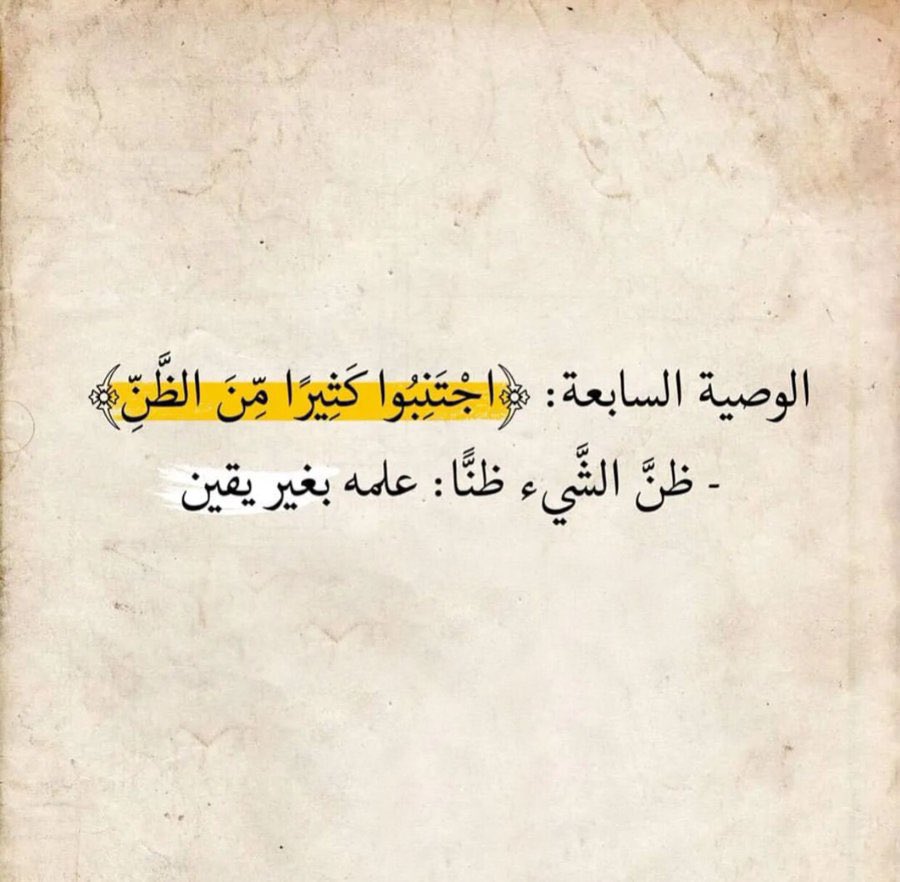 الوصية السابعة: ﴿اجْتَنِبُوا كَثِيرًا مِّنَ الظَّنِّ﴾
- ظنَّ الشَّيء ظنًّا: علمه بغير يقين